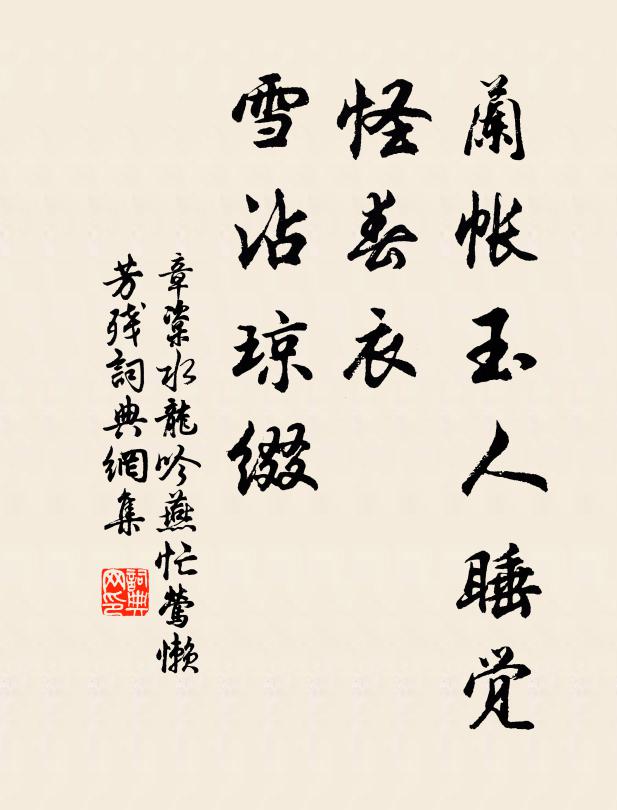 蘭帳玉人睡觉
怪春衣
雪沾琼缀
章楶水龍吟燕忙鶯懶
芳残詞典網集
詞典
网印